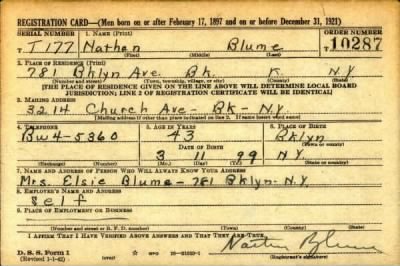 REGISTRATION CARD—(Men born on or after February 17, 1897 and on or before December 31, 1921)
SERIAL NUMBER
1. NAME (Print)
ORDER NUMBER
T 177
Nathan Blume
10287
(First) (Middle) (Last)
2. PLACE OF RESIDENCE (Print)
781 Bklyn Ave Bk K N.Y.
(Number and street) (Town, township, village, or city) (County) (State)
[THE PLACE OF RESIDENCE GIVEN ON THE LINE ABOVE WILL DETERMINE LOCAL BOARD
JURISDICTION; LINE 2 OF REGISTRATION CERTIFICATE WILL BE IDENTICAL]
3. MAILING ADDRESS
3214 Church Ave - BK - N.Y.
[Mailing address if other than place indicated on line 2. If same insert word same]
4. TELEPHONE
5. AGE IN YEARS
6. PLACE OF BIRTH
Bu4-5360
43
Bklyn
DATE OF BIRTH
(Town or county)
3 11 99
N.Y.
(Exchange) (Number)
(Mo.) (Day) (Yr.)
(State or country)
7. NAME AND ADDRESS OF PERSON WHO WILL ALWAYS KNOW YOUR ADDRESS
Mrs. Elsie Blume - 781 Bklyn - N.Y.
8. EMPLOYER'S NAME AND ADDRESS
Self
9. PLACE OF EMPLOYMENT OR BUSINESS
(Number and street or R. F. D. number) (Town) (County) (State)
I AFFIRM THAT I HAVE VERIFIED ABOVE ANSWERS AND THAT THEY ARE TRUE.
D. S. S. Form 1
(Revised 1-1-42)
GPO
Nathan Blume
(Registrant's signature)